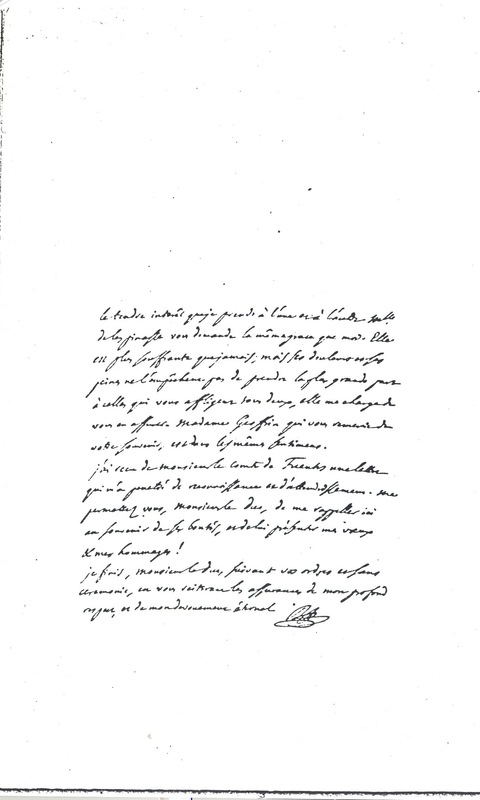 le tendre intérêt que je prends à l'une et à l'autre. Mlle
de lespinasse vous demande la même grace que moi. Elle
est plus souffrante que jamais, mais ses douleurs et ses
peines ne l'empêchent pas de prendre la plus grande part
à celles qui vous affligent tous deux, elle me charge de
vous en assurer. Madame Geoffrin qui vous remercie de
votre souvenir, est dans les mêmes sentimens.
j'ai reçu de monsieur le comte de Fuentes une lettre
qui m'a penetré de reconnoissance et d'attendrissement. me
permettez vous, monsieur le duc, de me rappeller ici
au souvenir de ses bontés, et de lui présenter mes vœux
& mes hommages!
je finis, monsieur le duc, suivant vos ordres et sans
ceremonie, en vous réitérant les assurances de mon profond
respect, et de mon devouement éternel